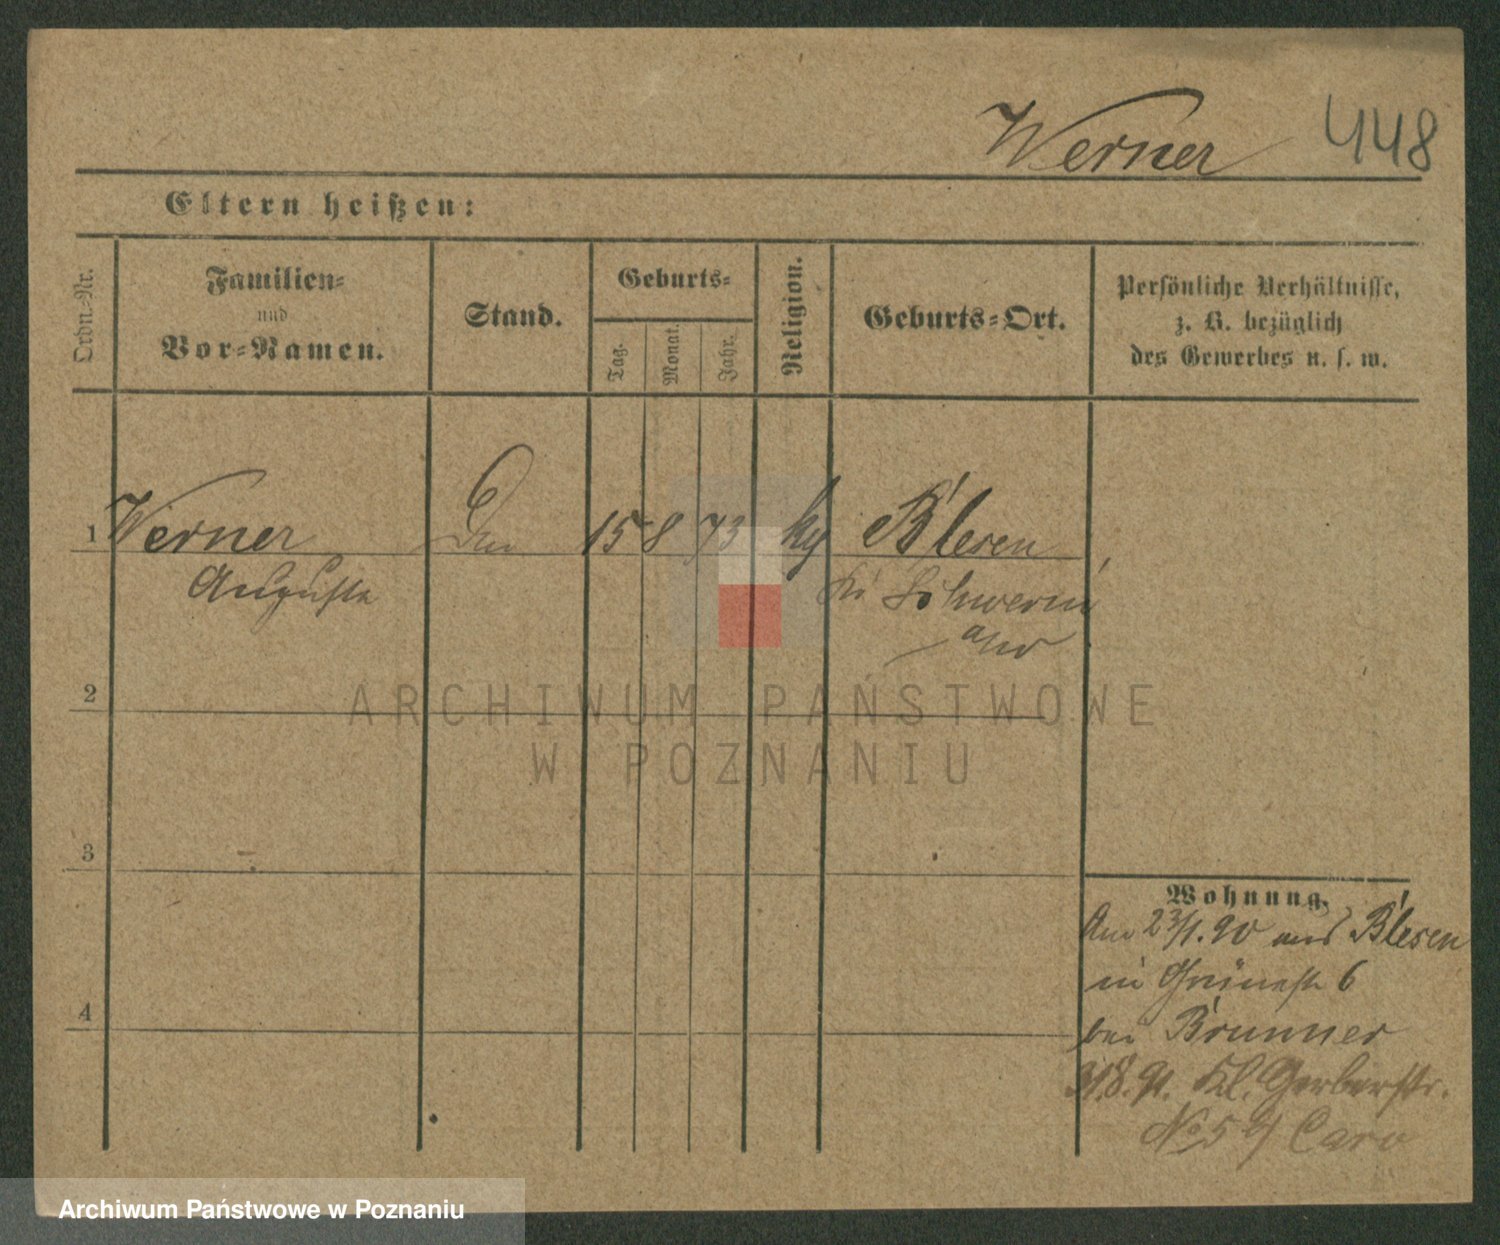 Werner 448
Eltern heißen:
Ordn.-Nr.
Familien-
und
Vor-Namen.
Stand.
Geburts-
Tag.
Monat.
Jahr.
Religion.
Geburts-Ort.
Persönliche Verhältnisse,
z. B. bezüglich
des Gewerbes u. s. w.
1 Werner 15 8 73 Blesen
Auguste Kr Schwerin
a/w
2
3
4
Wohnung.
Am 23/1. 90 aus Blesen
in Grünestr 6
bei Brunner
31.8.91. Kl. Gerberstr.
No 5 b/ Caro
ARCHIWUM PAŃSTWOWE
W POZNANIU
Archiwum Państwowe w Poznaniu